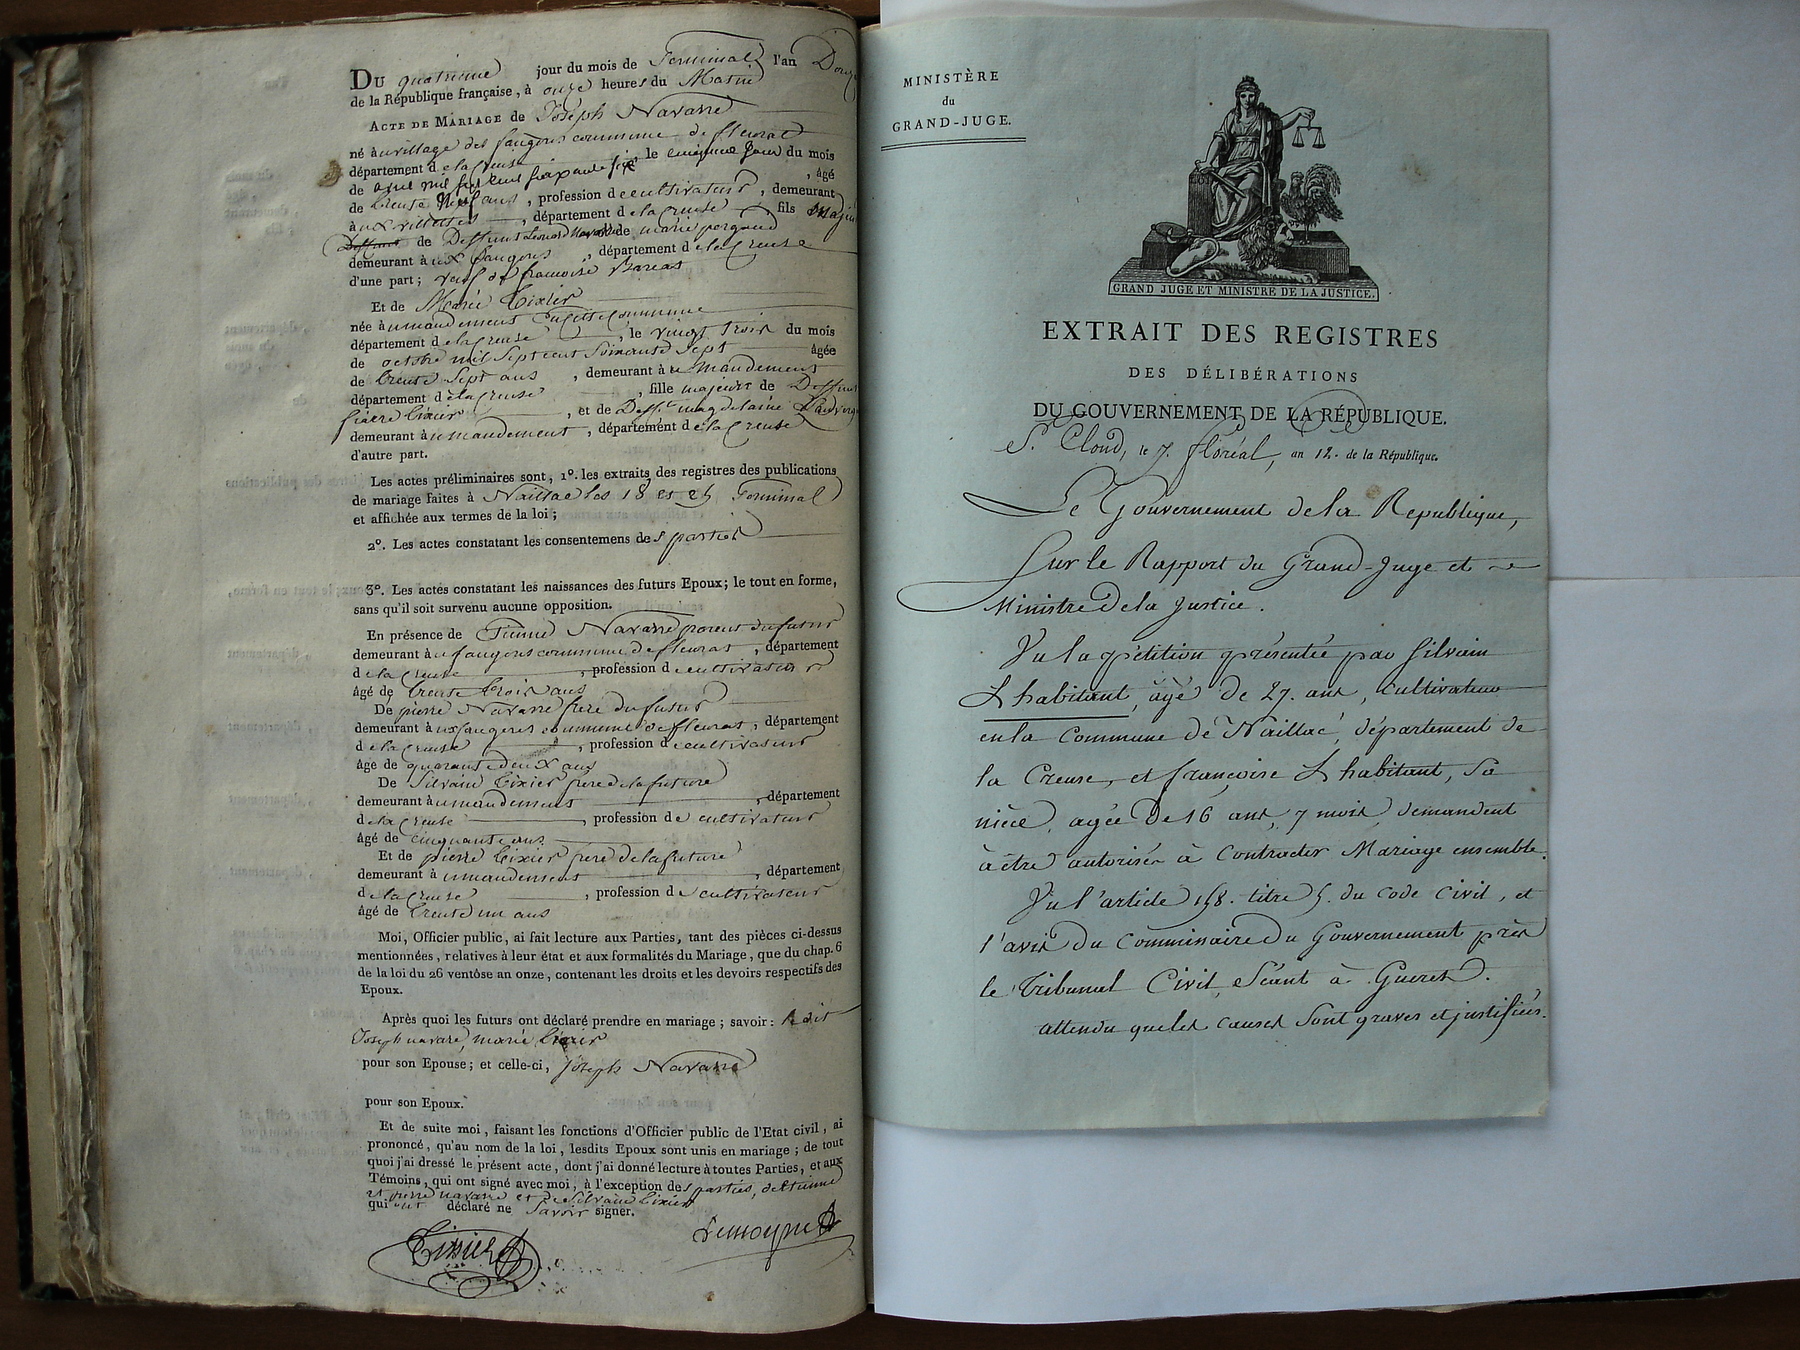 DU quatrieme jour du mois de Germinal l'an Douze
de la République française, à onze heures du Matin
ACTE DE MARIAGE de Joseph Navarre
né au village des faugeres commune de fleurat
département de la Creuse le cinquieme jour du mois
de avril mil sept cent soixante six , âgé
de trente neuf ans , profession de cultivateur , demeurant
aux villettes , département de la creuse , fils majeur
Deffunt de Deffunt Leonard Navarre de marie pergaud
demeurant aux faugeres , département de la Creuse
d'une part ; veuf de francoise Bareas
Et de Marie tixier
née à umandement Susditte Commune
département de la Creuse , le vingt trois du mois
de octobre mil Sept cent Soixante Sept âgée
de trente Sept ans , demeurant à u Mandement
département de la Creuse , fille majeure de Deffunt
pierre tixier , et de Deff.te magdelaine
demeurant à umandement , département de la Creuse
d'autre part.
Les actes préliminaires sont, 1°. les extraits des registres des publications
de mariage faites à Naillac les 18 et 25 Germinal
et affichée aux termes de la loi ;
2°. Les actes constatant les consentemens des parties
3°. Les actes constatant les naissances des futurs Epoux ; le tout en forme,
sans qu'il soit survenu aucune opposition.
En présence de Etienne Navarre parent du futur
demeurant au faugeres commune de fleurat , département
de la Creuse , profession de cultivateur
âgé de trente trois ans
De pierre Navarre frere du futur
demeurant aux faugeres commune de fleurat , département
de la Creuse , profession de cultivateur
âgé de quarante deux ans
De Silvain tixier frere de la future
demeurant à umandement , département
de la Creuse , profession de cultivateur
âgé de cinquante ans
Et de pierre tixier frere de la future
demeurant à umandement , département
de la Creuse , profession de cultivateur
âgé de trente un ans
Moi, Officier public, ai fait lecture aux Parties, tant des pièces ci-dessus
mentionnées, relatives à leur état et aux formalités du Mariage, que du chap. 6
de la loi du 26 ventôse an onze, contenant les droits et les devoirs respectifs des
Epoux.
Après quoi les futurs ont déclaré prendre en mariage ; savoir : ledit
Joseph navare, marie tixier
pour son Epouse ; et celle-ci, Joseph Navarre
pour son Epoux.
Et de suite moi, faisant les fonctions d'Officier public de l'Etat civil, ai
prononcé, qu'au nom de la loi, lesdits Epoux sont unis en mariage ; de tout
quoi j'ai dressé le présent acte, dont j'ai donné lecture à toutes Parties, et aux
Témoins, qui ont signé avec moi, à l'exception des parties, d'etienne
et pierre navarre et de Silvain tixier
qui ont déclaré ne Savoir signer.
Tixier Lemoyne
MINISTÈRE
du
GRAND-JUGE.
GRAND JUGE ET MINISTRE DE LA JUSTICE.
EXTRAIT DES REGISTRES
DES DÉLIBÉRATIONS
DU GOUVERNEMENT DE LA RÉPUBLIQUE.
St. Cloud, le 7. floréal, an 12. de la République.
Le Gouvernement de la Republique,
Sur le Rapport du Grand-Juge et
Ministre de la Justice.
Vu la pétition présentée par Silvain
Lhabitant, âgé de 27. ans, cultivateur
en la Commune de Naillac, département de
la Creuse, et françoise Lhabitant, Sa
nièce, agée de 16 ans, 7 mois, demandent
à être autorisés à Contracter Mariage ensemble.
Vu l'article 158. titre 5. du code Civil, et
l'avis du Commissaire du Gouvernement près
le Tribunal Civil, Séant à Gueret.
attendu que les causes sont graves et justifiées.